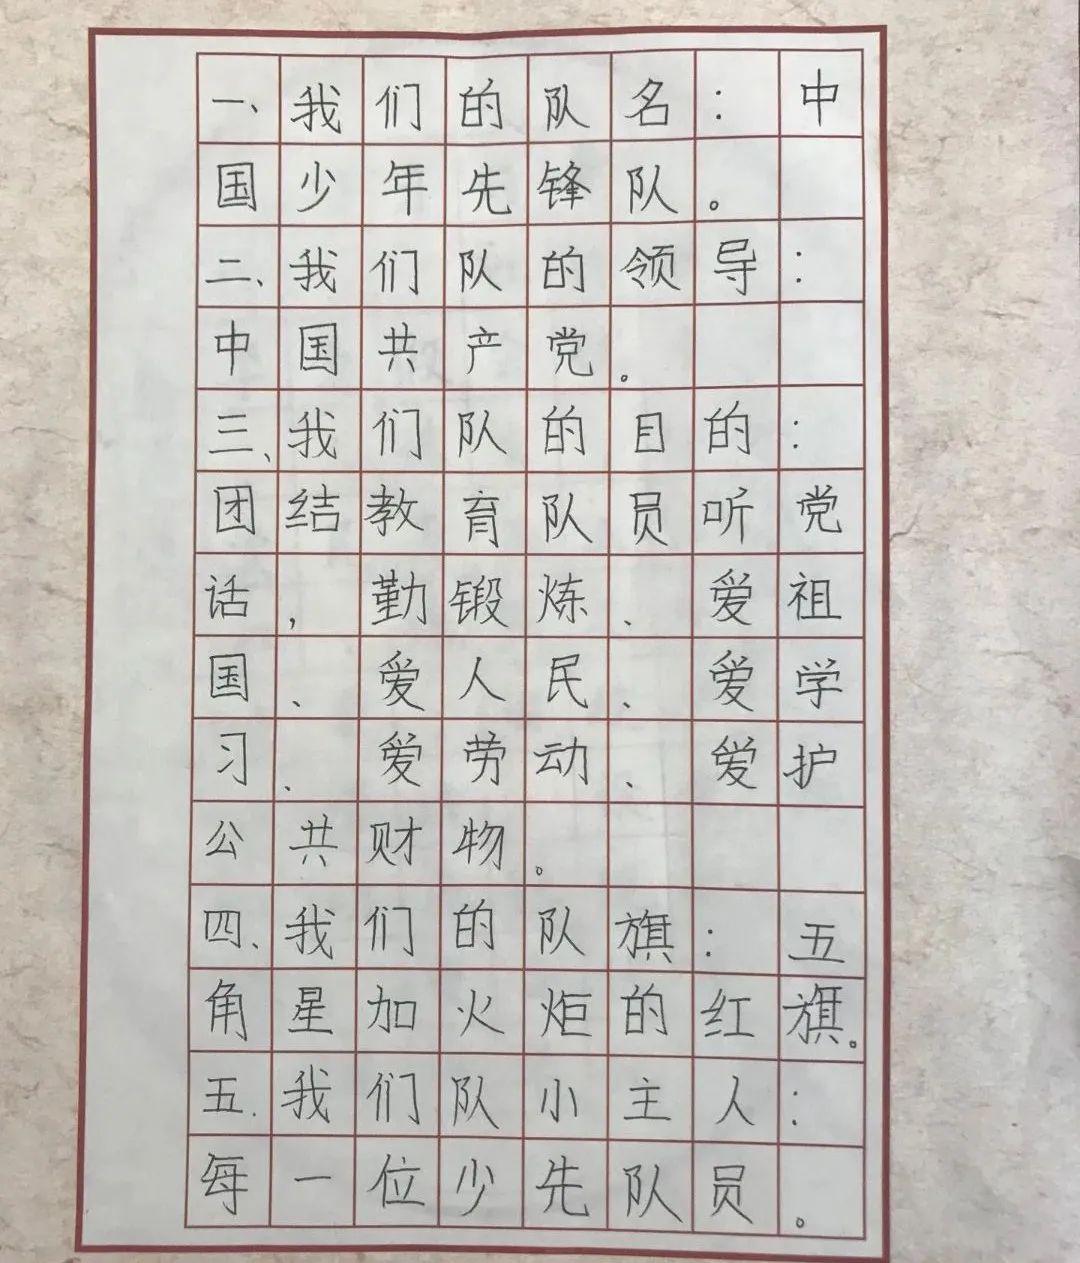 一、我们的队名：中
国少年先锋队。
二、我们队的领导：
中国共产党。
三、我们队的目的：
团结教育队员听党
话，勤锻炼、爱祖
国、爱人民、爱学
习、爱劳动、爱护
公共财物。
四、我们的队旗：五
角星加火炬的红旗。
五.我们队小主人：
每一位少先队员。